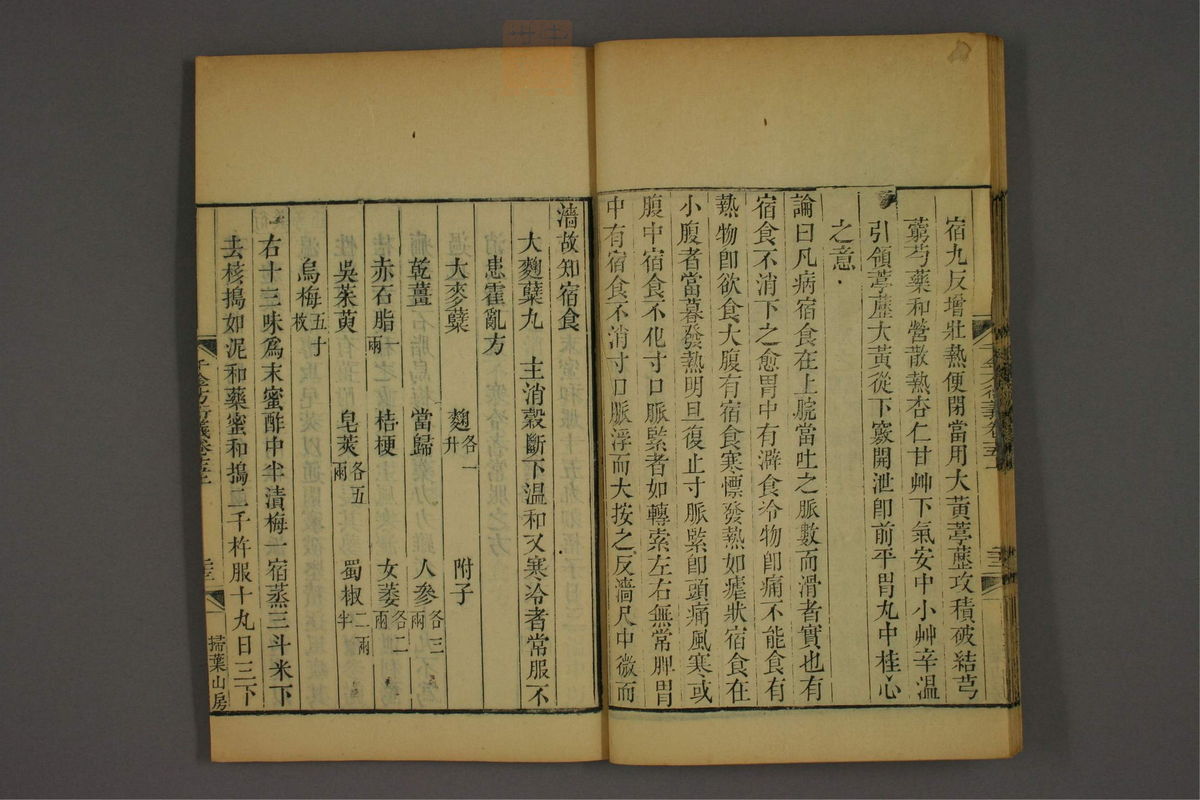 宿九反增壯熱便閉當用大黃葶藶攻積破結芎
藭芍藥和營散熱杏仁甘艸下氣安中小艸辛溫
引領葶藶大黃從下竅開泄卽前平胃丸中桂心
之意
論曰凡病宿食在上脘當吐之脈數而滑者實也有
宿食不消下之愈胃中有澼食冷物卽痛不能食有
熱物卽欲食大腹有宿食寒慄發熱如瘧狀宿食在
小腹者當暮發熱明旦復止寸脈緊卽頭痛風寒或
腹中宿食不化寸口脈緊者如轉索左右無常脾胃
中有宿食不消寸口脈浮而大按之反濇尺中微而
濇故知宿食
大麴蘖丸 主消穀斷下溫和又寒冷者常服不
患霍亂方
大麥蘖 麴各一升 附子
乾薑 當歸 人參各三兩
赤石脂一兩 桔梗 女萎各二兩
吳茱萸 皂莢各五兩 蜀椒二兩半
烏梅五十枚
右十三味爲末蜜酢中半漬梅一宿蒸三斗米下
去核搗如泥和藥蜜和搗二千杵服十丸日三下
掃葉山房